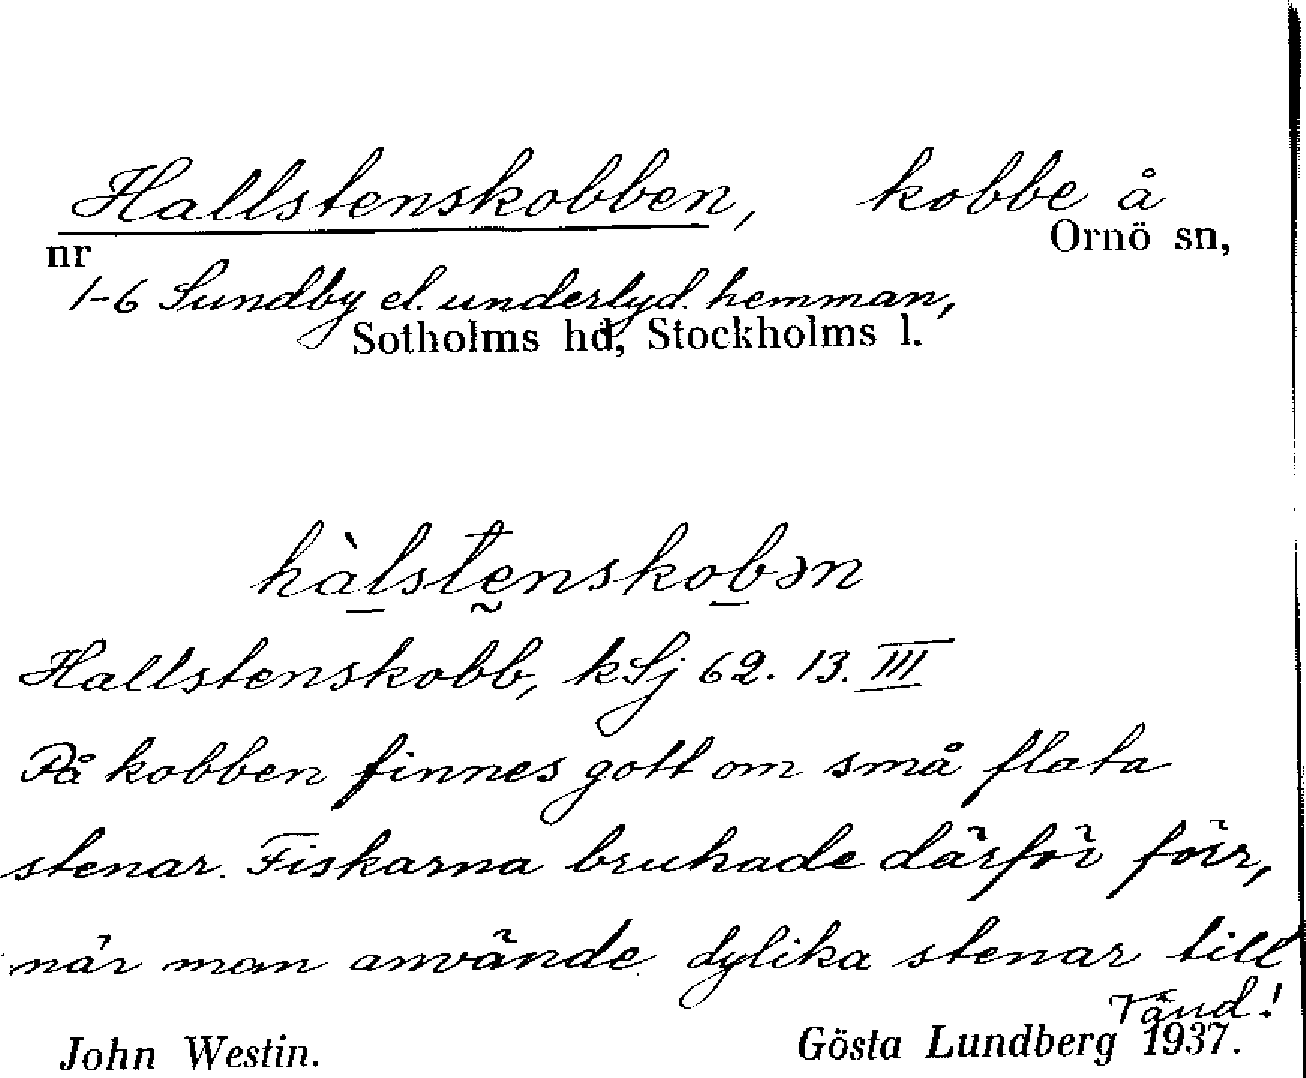 Hallstenskobben, kobbe å
Ornö sn,
nr
1-6 Sundby el. underlyd. hemman,
Sotholms hd, Stockholms l.
hàlstenskobən
Hallstenskobb, kSj 62. 13. III
På kobben finnes gott om små flata
stenar. Fiskarna brukade därför förr,
när man använde dylika stenar till
Vänd!
John Westin. Gösta Lundberg 1937.